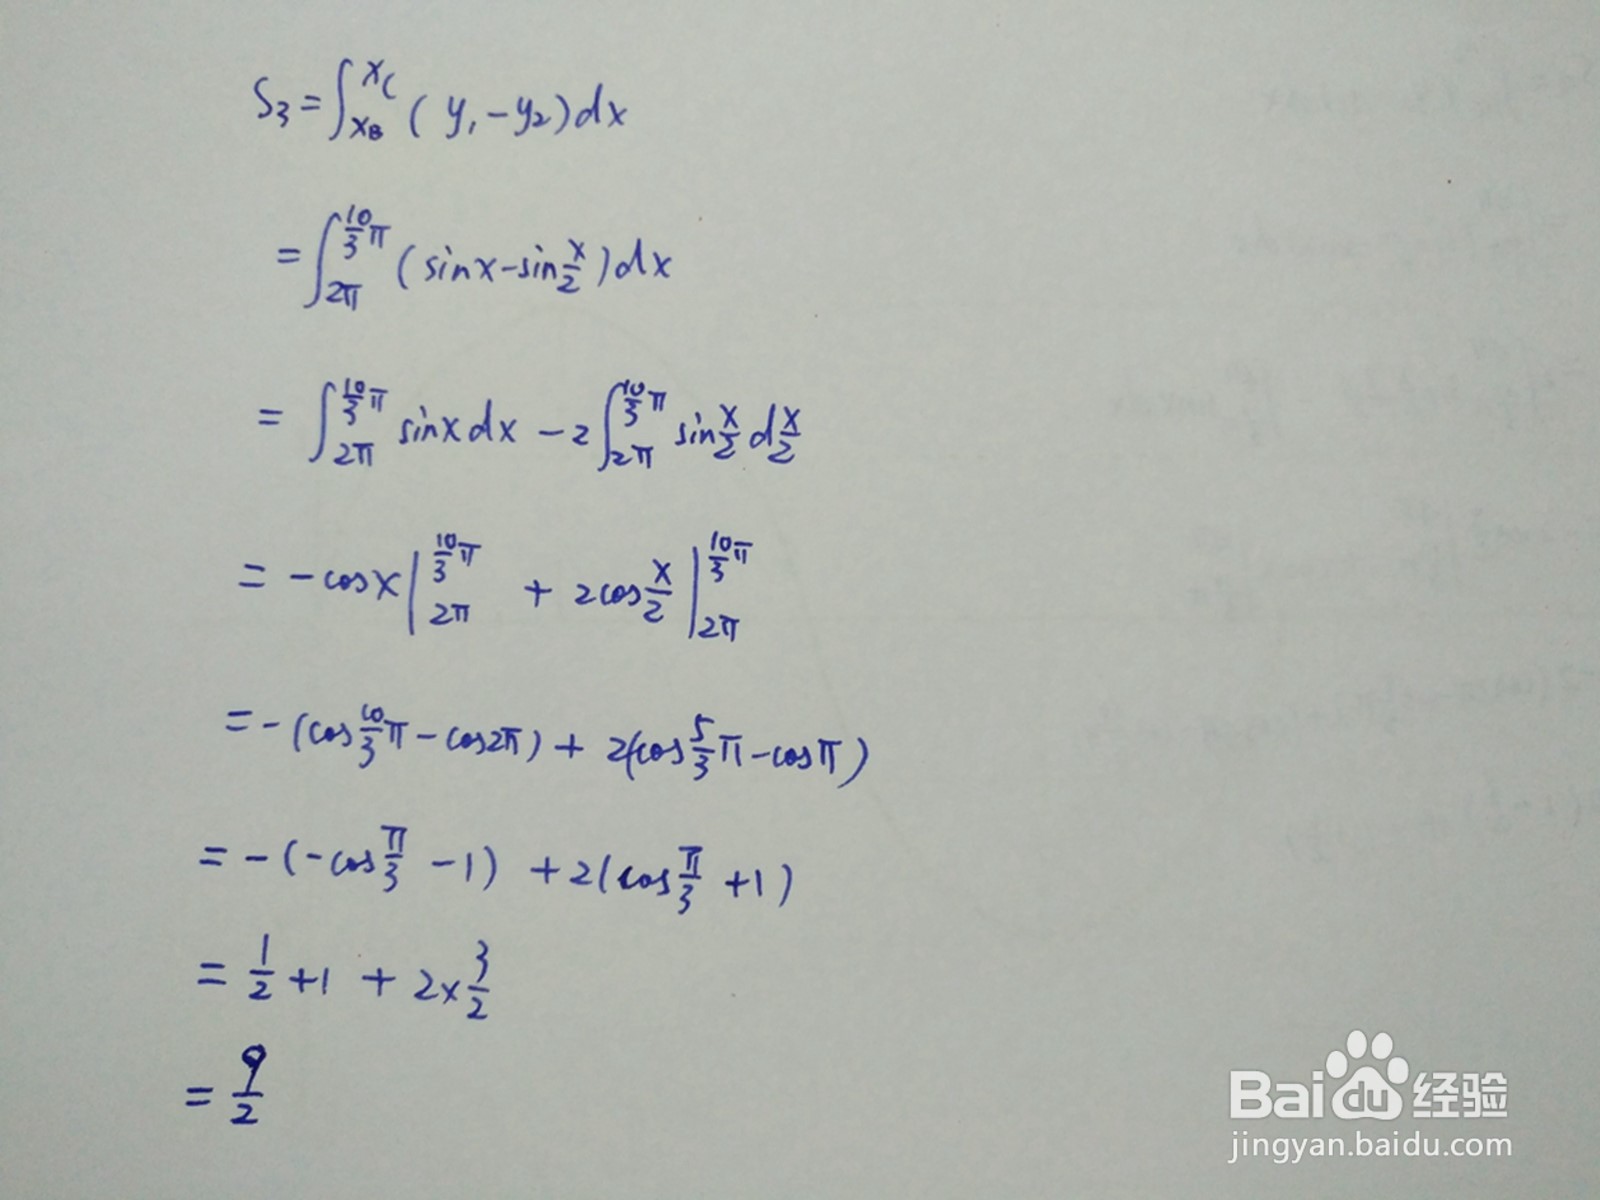 S₃ = ∫_{x_B}^{x_C} (y₁ - y₂)dx
= ∫_{2π}^{10/3 π} (sinx - sin x/2)dx
= ∫_{2π}^{10/3 π} sinx dx - 2∫_{2π}^{10/3 π} sin x/2 d x/2
= -cosx |_{2π}^{10/3 π} + 2cos x/2 |_{2π}^{10/3 π}
= -(cos 10/3 π - cos2π) + 2(cos 5/3 π - cosπ)
= -(-cos π/3 - 1) + 2(cos π/3 + 1)
= 1/2 + 1 + 2 × 3/2
= 9/2
Baidu 经验
jingyan.baidu.com